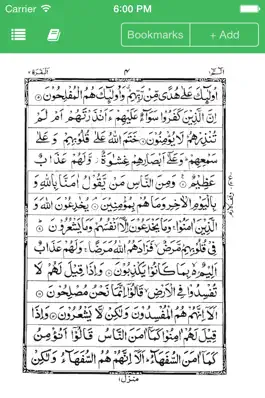 Carrier 6:00 PM
Bookmarks + Add
الٓمّٓ البقرة
اُولٰٓئِكَ عَلٰى هُدًى مِّنْ رَّبِّهِمْ وَاُولٰٓئِكَ هُمُ الْمُفْلِحُوْنَ
اِنَّ الَّذِيْنَ كَفَرُوْا سَوَآءٌ عَلَيْهِمْ ءَاَنْذَرْتَهُمْ اَمْ لَمْ
تُنْذِرْهُمْ لَا يُؤْمِنُوْنَ خَتَمَ اللّٰهُ عَلٰى قُلُوْبِهِمْ وَعَلٰى
سَمْعِهِمْ وَعَلٰٓى اَبْصَارِهِمْ غِشَاوَةٌ وَّلَهُمْ عَذَابٌ
عَظِيْمٌ وَمِنَ النَّاسِ مَنْ يَّقُوْلُ اٰمَنَّا بِاللّٰهِ وَ
بِالْيَوْمِ الْاٰخِرِ وَمَا هُمْ بِمُؤْمِنِيْنَ يُخٰدِعُوْنَ اللّٰهَ وَ
الَّذِيْنَ اٰمَنُوْا وَمَا يَخْدَعُوْنَ اِلَّآ اَنْفُسَهُمْ وَمَا يَشْعُرُوْنَ
فِيْ قُلُوْبِهِمْ مَّرَضٌ فَزَادَهُمُ اللّٰهُ مَرَضًا وَلَهُمْ عَذَابٌ
اَلِيْمٌ بِمَا كَانُوْا يَكْذِبُوْنَ وَاِذَا قِيْلَ لَهُمْ لَا
تُفْسِدُوْا فِي الْاَرْضِ قَالُوْٓا اِنَّمَا نَحْنُ مُصْلِحُوْنَ
اَلَآ اِنَّهُمْ هُمُ الْمُفْسِدُوْنَ وَلٰكِنْ لَّا يَشْعُرُوْنَ وَاِذَا
قِيْلَ لَهُمْ اٰمِنُوْا كَمَآ اٰمَنَ النَّاسُ قَالُوْٓا اَنُؤْمِنُ
كَمَآ اٰمَنَ السُّفَهَآءُ اَلَآ اِنَّهُمْ هُمُ السُّفَهَآءُ وَلٰكِنْ
منزل١